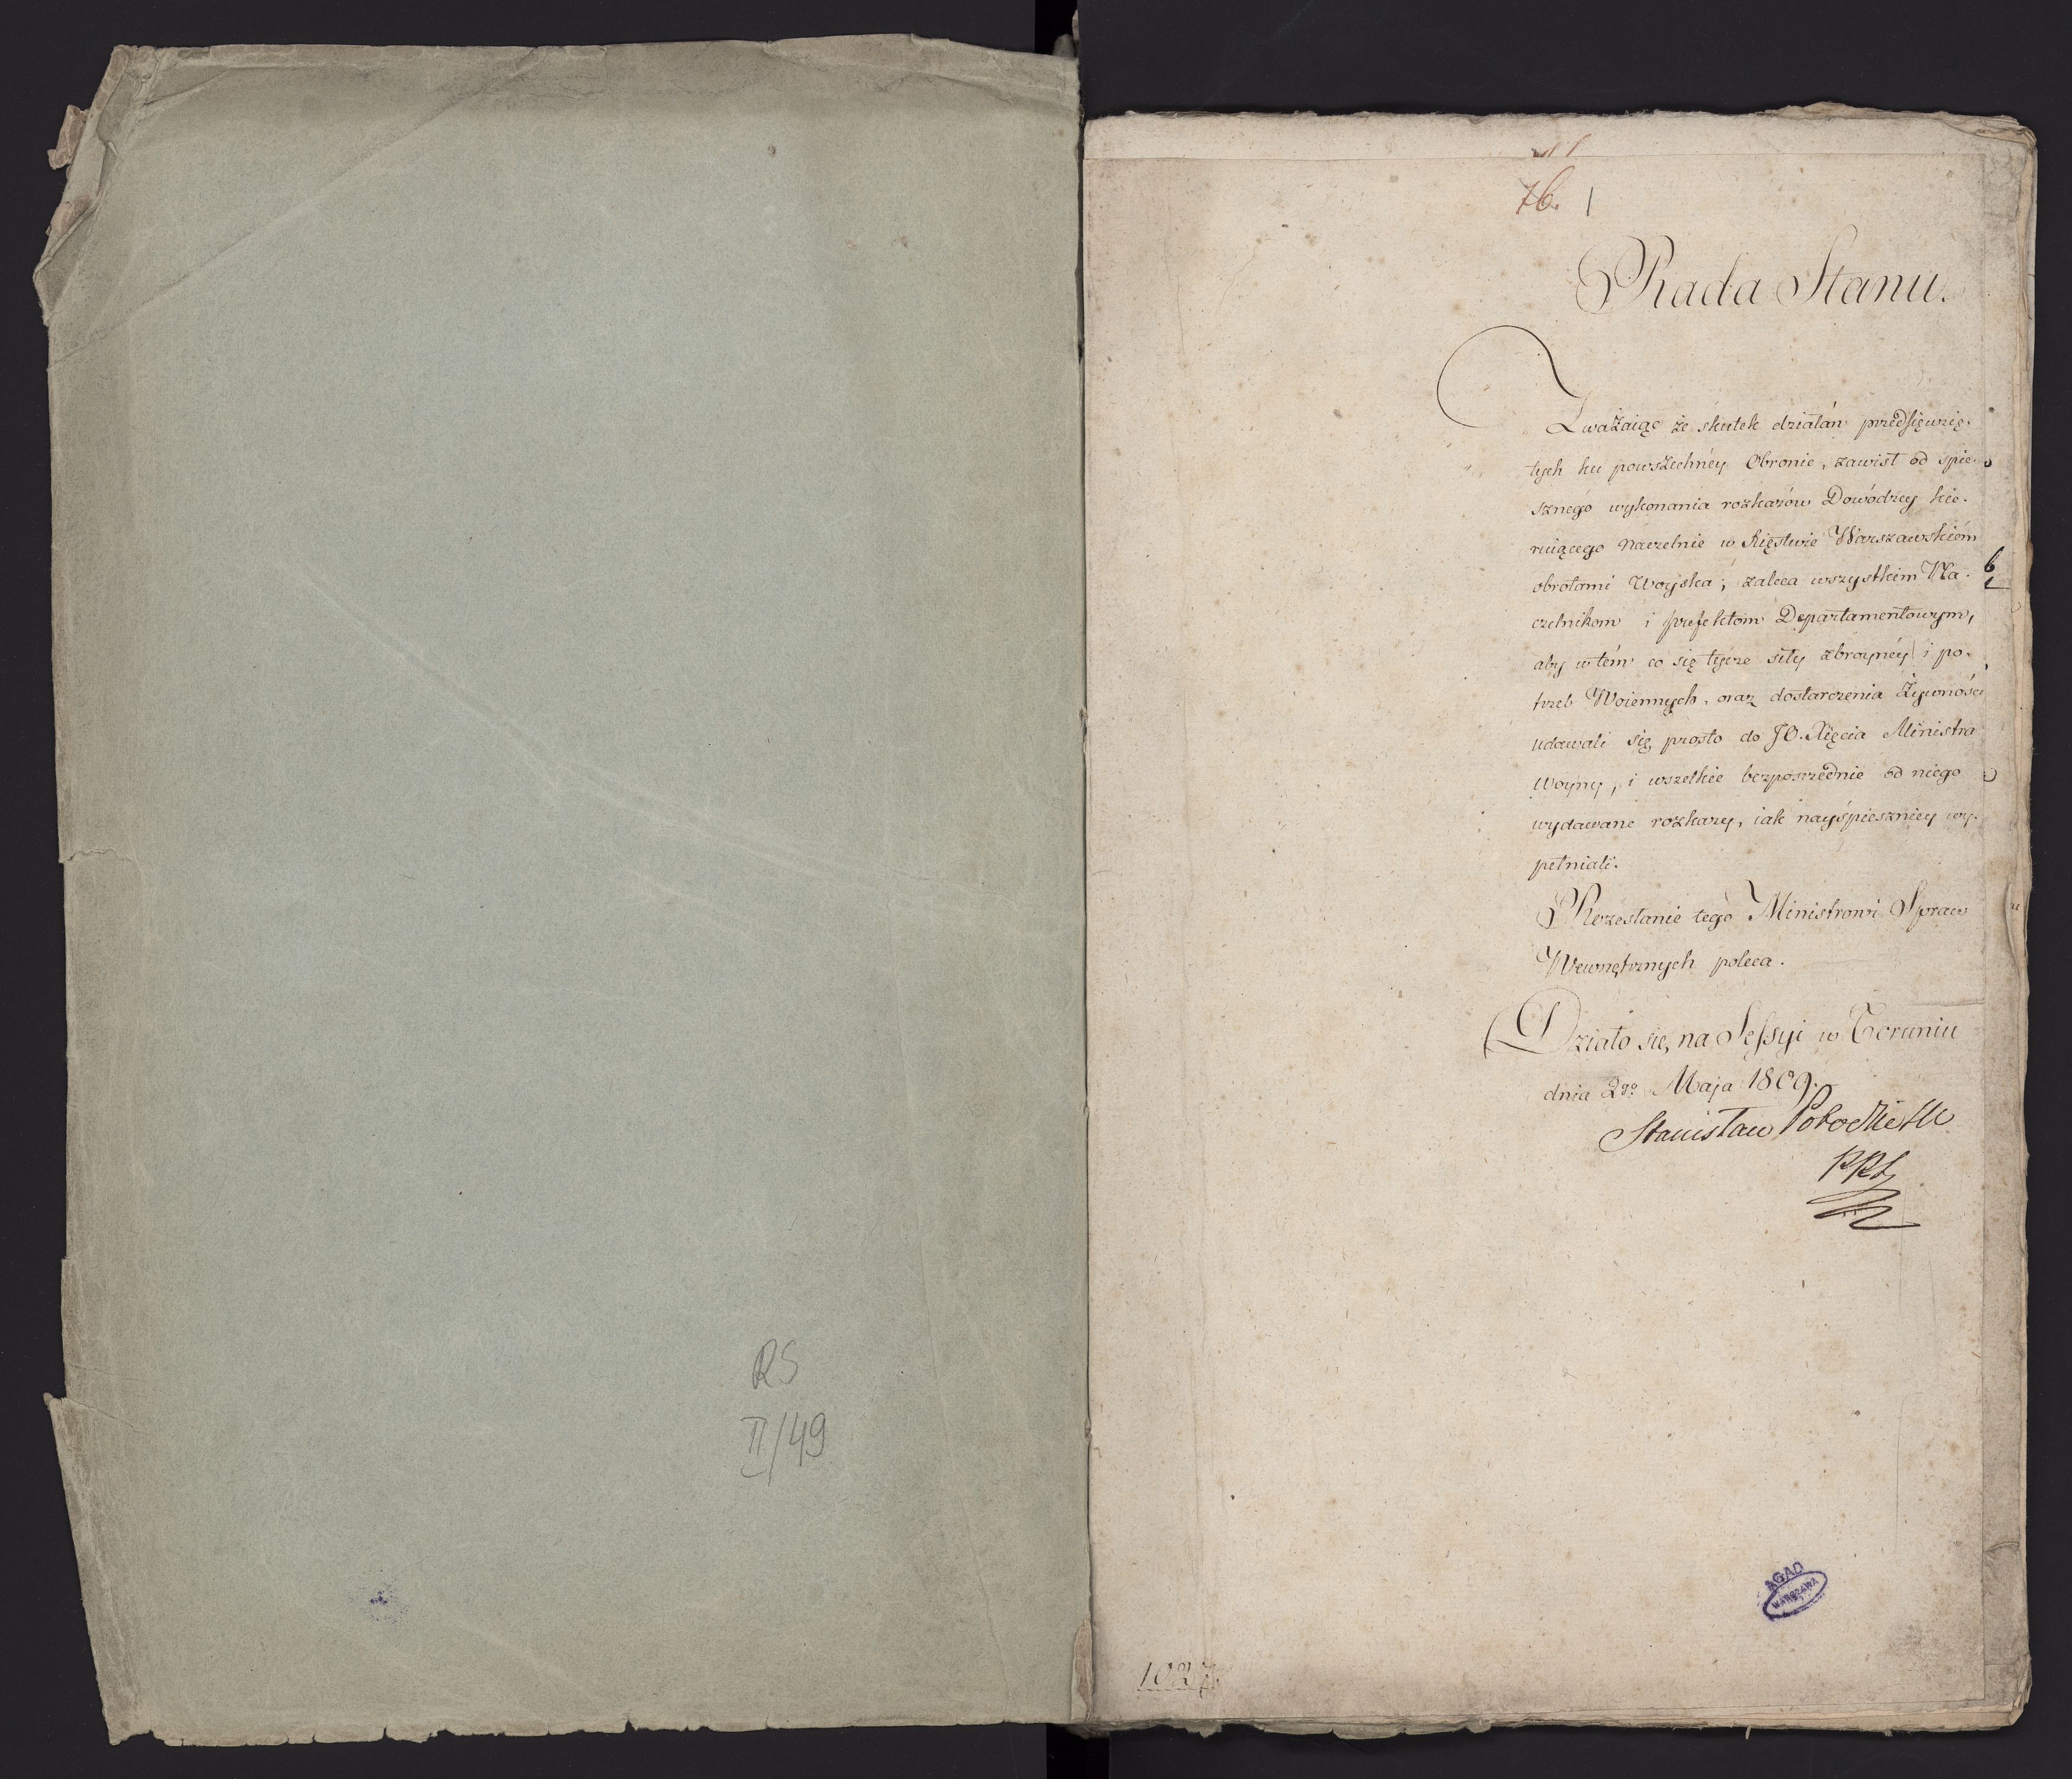 RS
II/49
76. 1
Rada Stanu.
Zważaiąc że skutek działań przedsięwzię-
tych ku powszechney Obronie, zawisł od spie-
sznego wykonania rozkazów Dowódzcy kie-
ruiącego naczelnie w Xięstwie Warszawskiém
obrotami Woyska; zaleca wszystkim Na-
czelnikom i prefektom Departamentowym,
aby w tém co się tycze siły zbroyney i po-
trzeb Woiennych, oraz dostarczenia żywności
udawali się prosto do JO. Xięcia Ministra
Woyny, i wszelkie bezpośrzednie od niego
wydawane rozkazy, iak nayśpieszniey wy-
pełniali.
Rozesłanie tego Ministrowi Spraw
Wewnętrznych poleca.
Działo się na Sessyi w Toruniu
dnia 2go Maja 1809.
Stanisław Potocki
AGAD
WARSZAWA
1027.